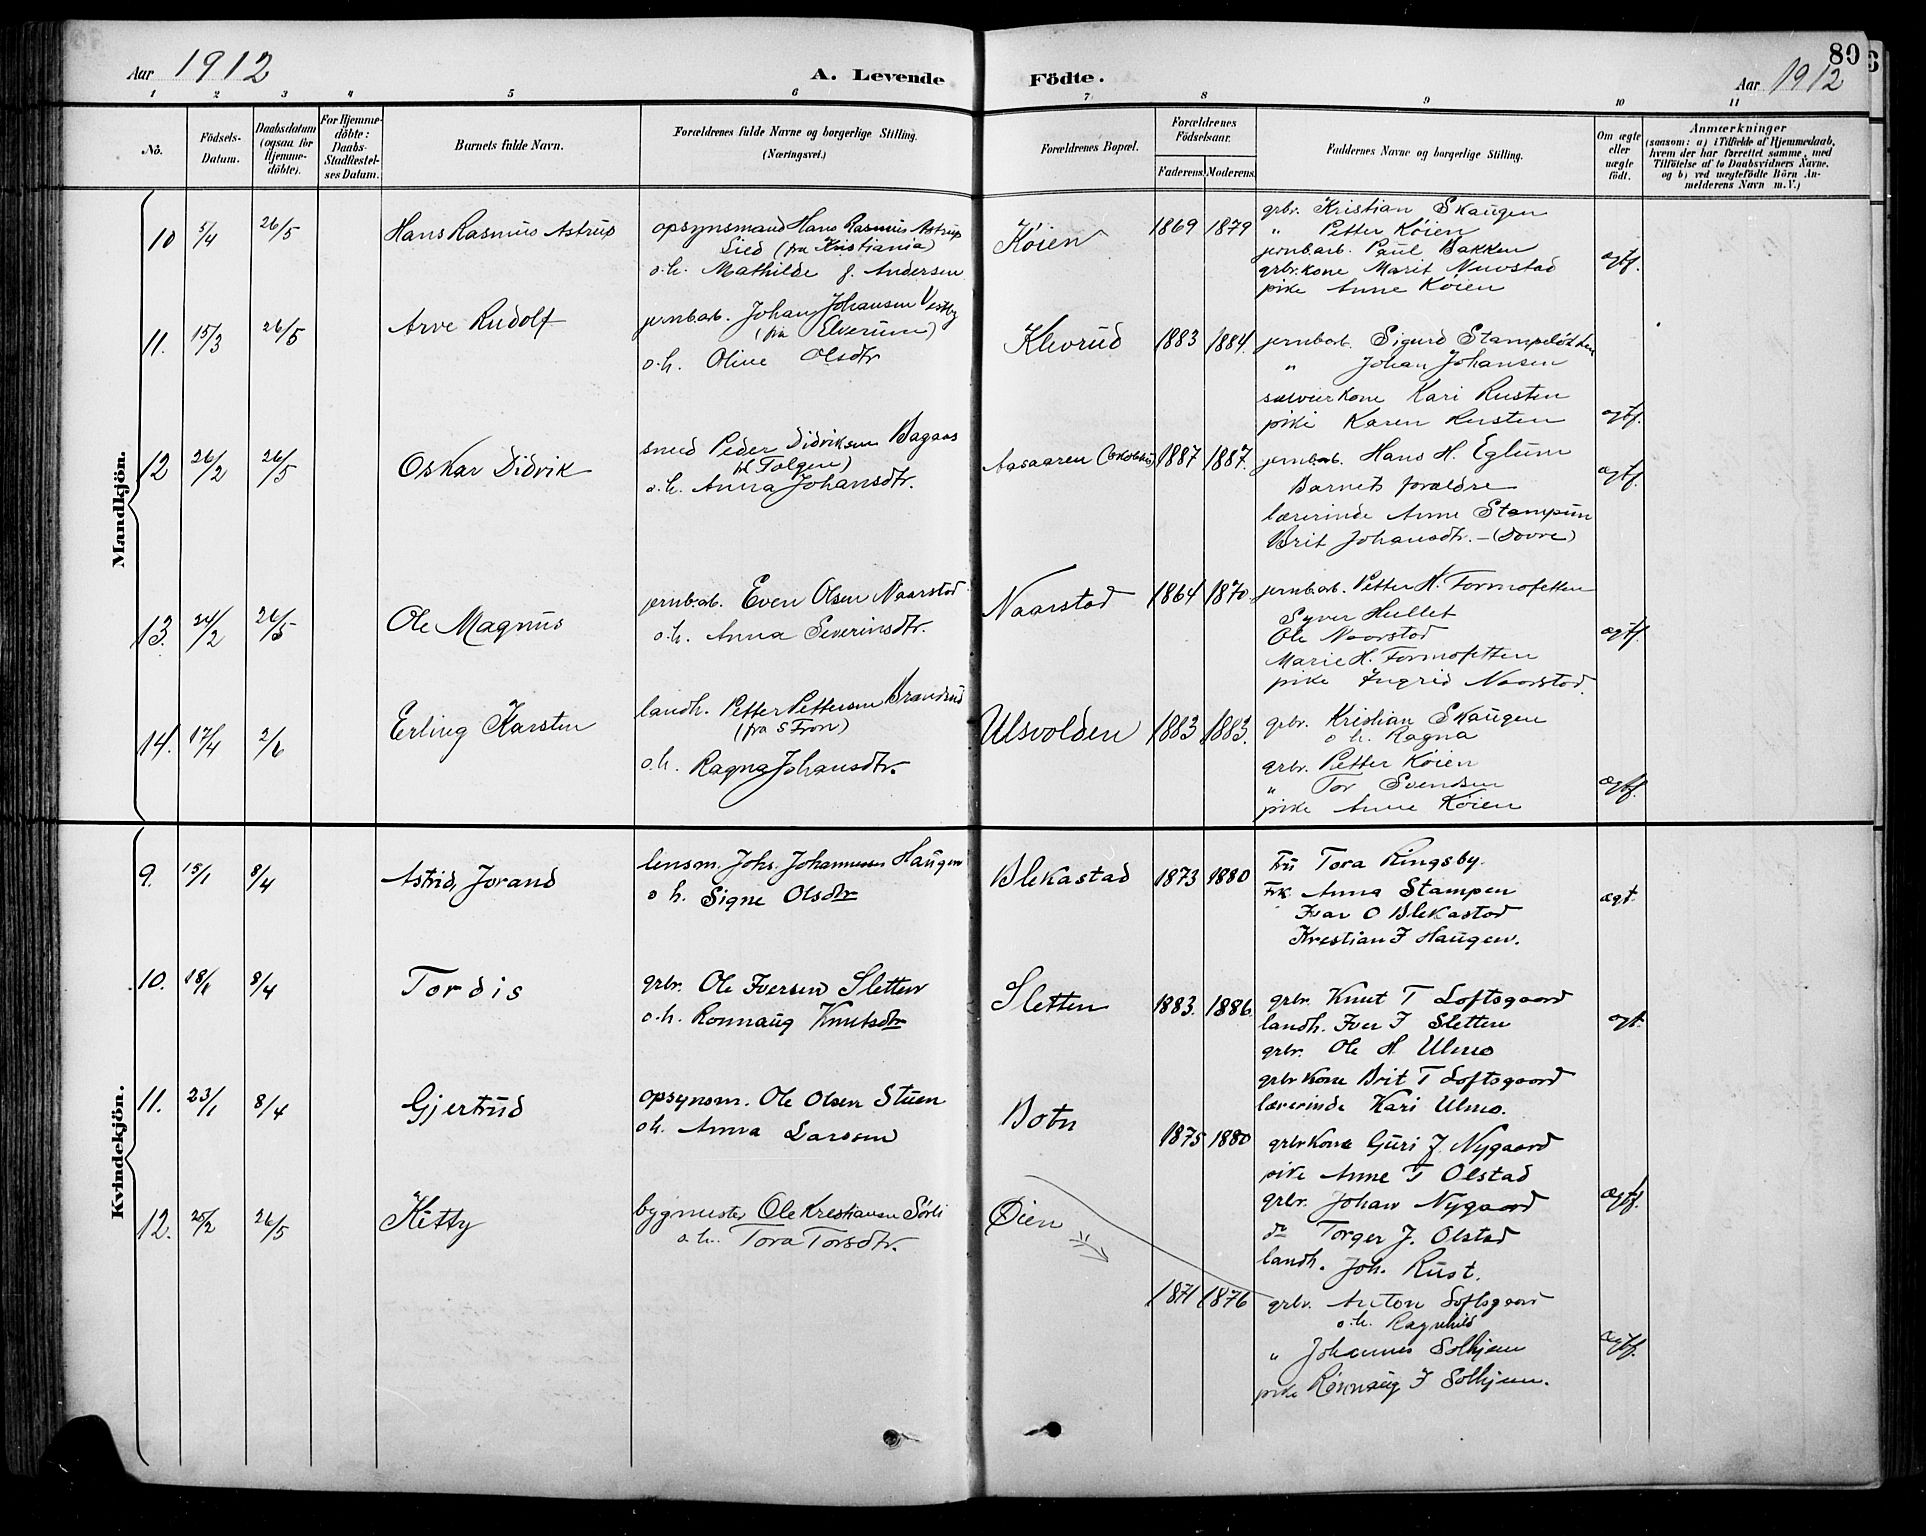 Aar 1912
A. Levende
Födte.
Aar 1912
80
1 2 3 4 5 6 7 8 9 10 11
No.
Födsels-
Datum.
Daabsdatum
(ogsaa for
Hjemme-
döbte).
For Hjemme-
döbte:
Daabs-
Stadfæstel-
ses Datum.
Barnets fulde Navn.
Forældrenes fulde Navne og borgerlige Stilling.
(Næringsvei.)
Forældrenes Bopæl.
Forældrenes
Födselsaar.
Faderens. Moderens.
Faddernes Navne og borgerlige Stilling.
Om ægte
eller
uægte
födt.
Anmærkninger
(saasom: a) i Tilfælde af Hjemmedaab,
hvem der har forrettet samme, med
Tilföielse af to Daabsvidners Navne.
og b) ved uægtefödte Börn An-
melderens Navn m.V.)
Mandkjön.
10 5/4 26/5 Hans Rasmus Astrup
opsynsmand Hans Rasmus Astrup
Lied (fra Kristiania)
o.h. Mathilde f. Andersen
Køien 1869 1879
grbr. Kristian Skaugen
" Petter Køien
jernbarb. Paul Bakken
grbr.kone Marit
pike Anne Køien
ægtf.
11. 15/3 26/5 Arve Rudolf
jernb.arb. Johan Johansen Vestby
(fra Elverum)
o.h. Oline Olsdtr
Klevrud 1883 1884.
jernbarb. Sigurd Stampeløkken
" Johan Johansen
kone Kari Rusten
pike Karen Rusten
ægtf.
12 26/2 26/5 Oskar Didvik
smed Peder Didviksen Bagaas
Tolgen)
o.h. Anna Johansdtr.
Aasaaren 1887 1887.
jernb.arb. Hans H. Eglum
Barnets forældre
lærerinde Anne Stampun
Brit Johansdtr. - (Dovre)
ægtf.
13. 24/2 26/5 Ole Magnus
jernb.arb. Even Olsen Naarstad
o.h. Anna Severinsdtr.
Naarstad 1864 1870.
jernb.arb. Petter H. Formofetten
Syver Hullet
Ole Naarstad
Marie H. Formofetten
pike Ingrid Naarstad.
ægtf.
14. 17/4 2/6 Erling Karsten
landh. Petter Pettersen Brandrud
(fra S Fron)
o.h. Ragna Johansdtr.
Ulsvolden 1883 1883.
grbr. Kristian Skaugen
o h. Ragna
grbr. Petter Køien
" Tor Svendsen
pike Anne Køien
ægtf.
Kvindekjön.
9. 15/1 8/4 Astrid, Jorand
lensm. Johs. Johannessen Haugen
o h. Signe Olsdtr
Blekastad 1873 1880
Fru Tora Ringsby.
Frk. Anna Stampen
Ivar O Blekastad
Krestian J Haugen.
ægt.
10. 18/1 8/4 Tordis
grbr. Ole Iversen Sletten
o.h. Ronnaug Knutsdtr
Sletten 1883. 1886.
grbr. Knut T Loftsgaard
landh. Iver I Sletten
grbr. Ole H. Ulmo
grbr kone Brit T Loftsgaard
lærerinde Kari Ulmo.
ægt.
11. 23/1 8/4 Gjertrud
opsynsm. Ole Olsen Stuen
o h. Anna Larssen
Botn
1875 1880
grbr kone Guri J. Nygaard
pike Anne T Olstad
grbr. Johan Nygaard
do Torger J. Olstad
landh. Joh. Rust.
ægtf.
12. 25/2 26/5 Kitty
bygmester Ole Krestiansen Sørli
o.h. Tora Torsdtr.
Øien
1871 1876
grbr. Anton Loftsgaard
o.h. Ragnhild
" Johannes Solhjem
pike Rønnaug J Solhjem.
ægtf.